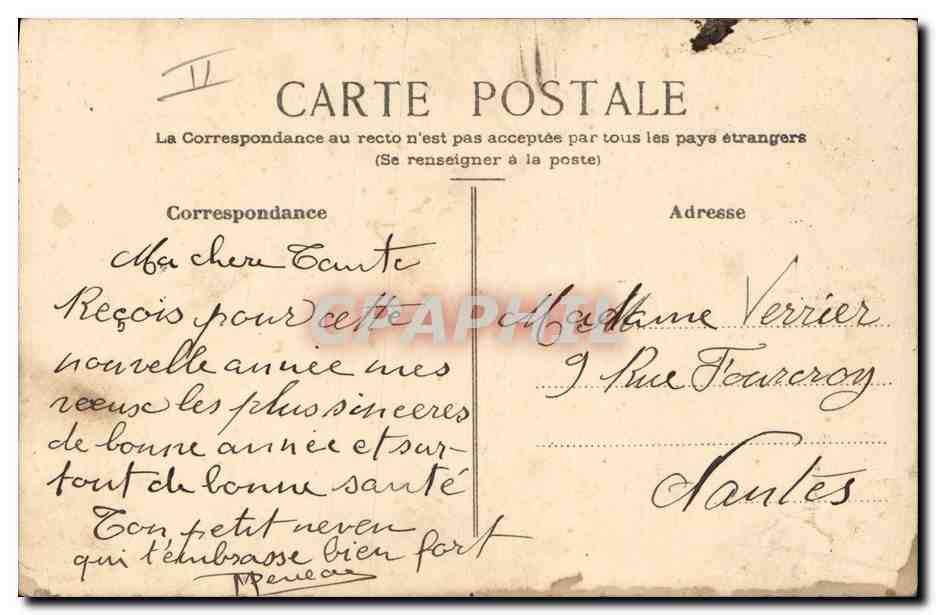 II
CARTE POSTALE
La Correspondance au recto n'est pas acceptée par tous les pays étrangers
(Se renseigner à la poste)
Correspondance
Ma chere Tante
Reçois pour cette
nouvelle année mes
vœux les plus sinceres
de bonne année et sur-
tout de bonne santé
Ton petit neveu
qui t'embrasse bien fort
Adresse
Madame Verrier
9 Rue Fourcroy
Nantes
CPAPHIL